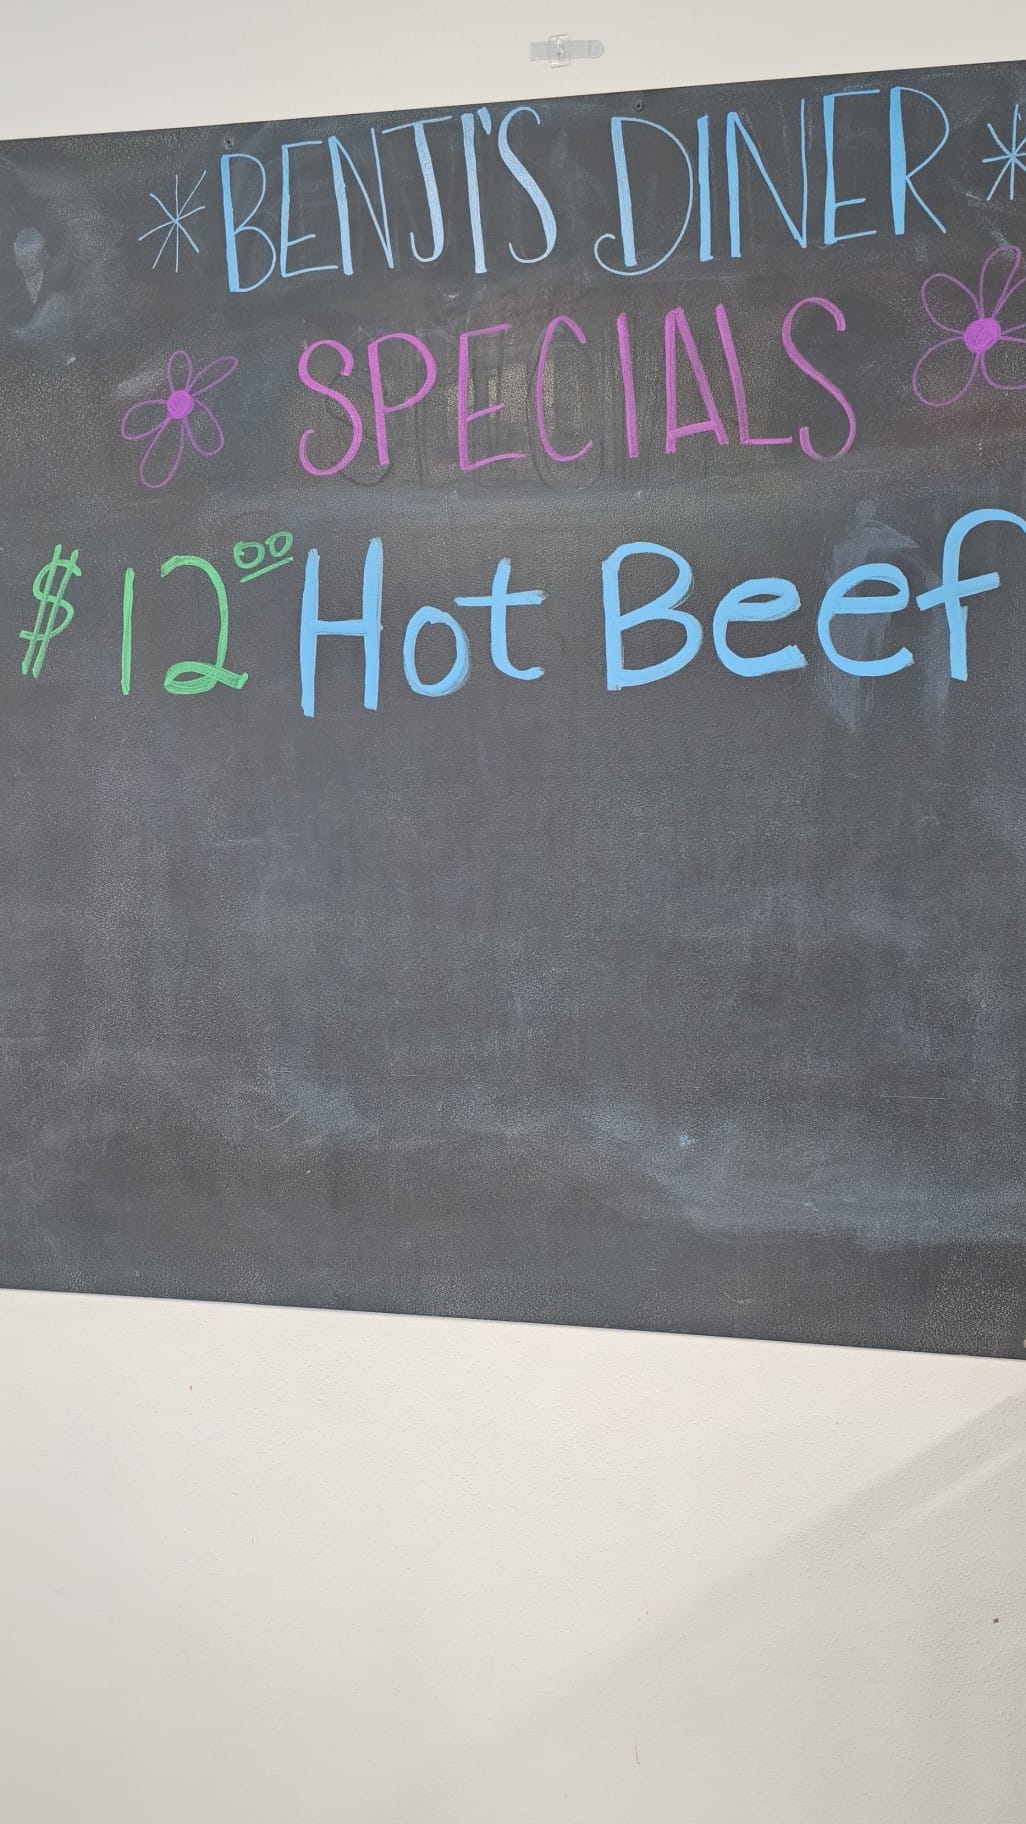 BENJI'S DINER
SPECIALS
$12.00 Hot Beef